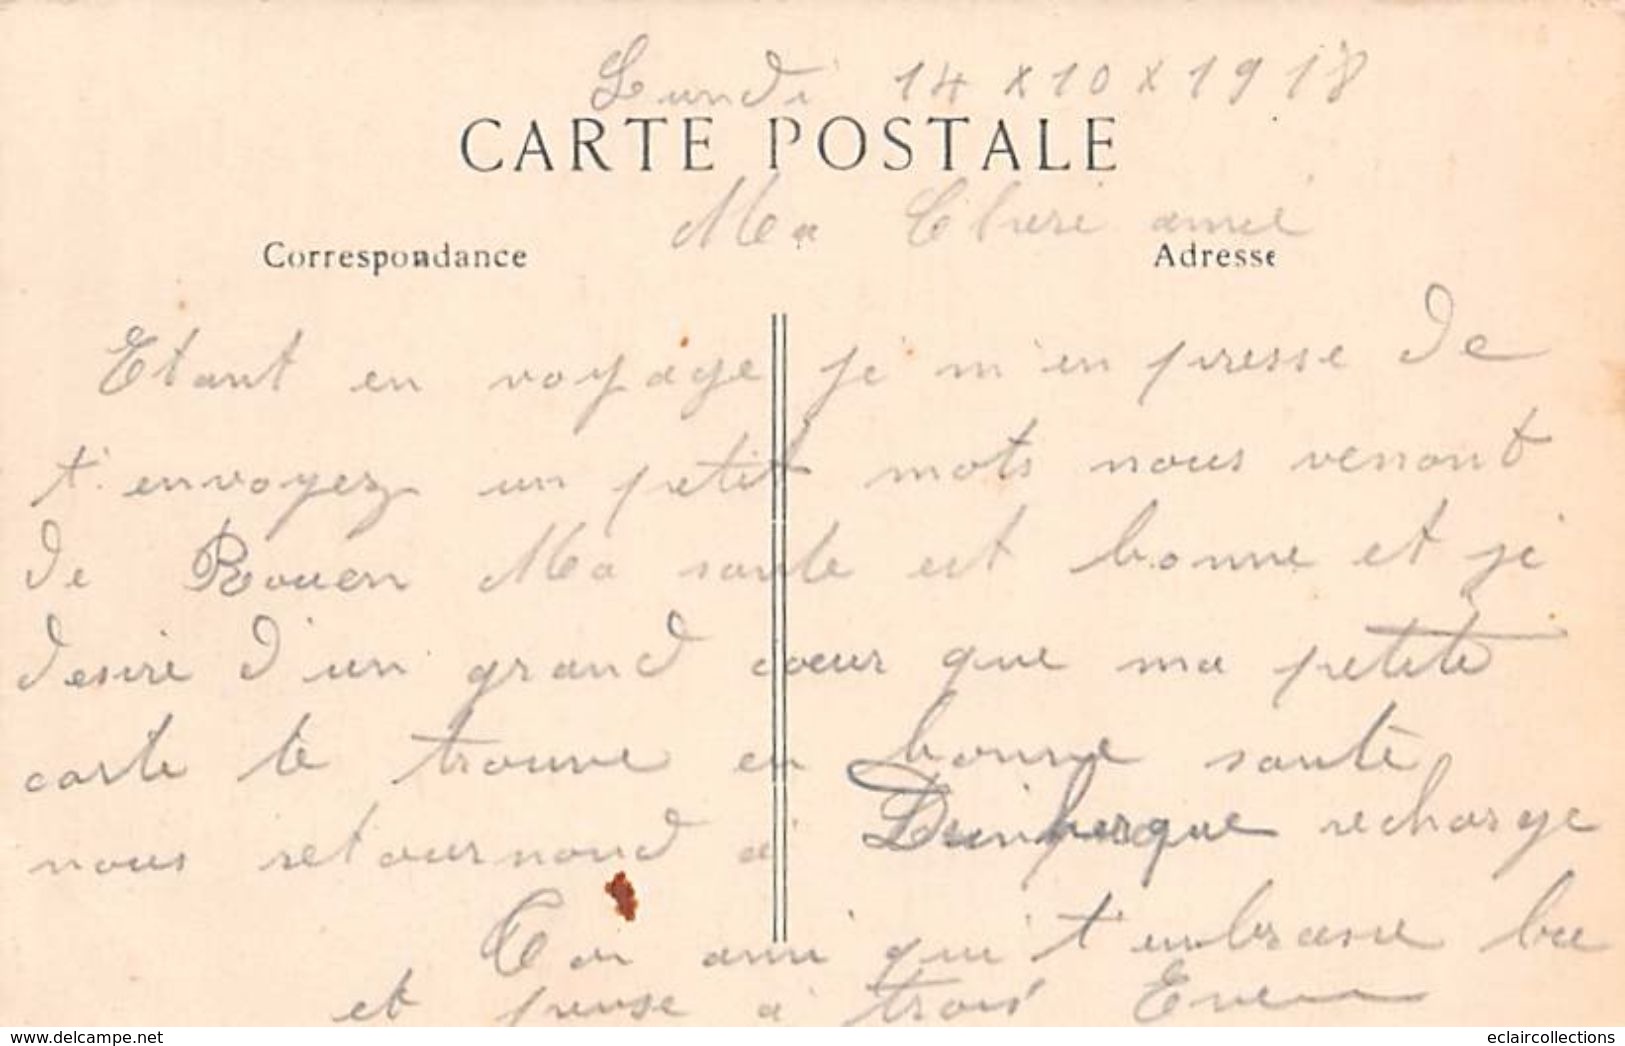 Lundi 14 x 10 x 1918
CARTE POSTALE
Ma Chere amie
Correspondance
Adresse
Etant en voyage je m'en presse de
t'envoyez un petit mots nous venont
de Rouen Ma sante est bonne et je
desire d'un grand coeur que ma petite
carte te trouve en bonne santé
nous retournond a Dunkerque recharge
Ton ami qui t'embrasse
et pense a
www.delcampe.net
eclaircollections